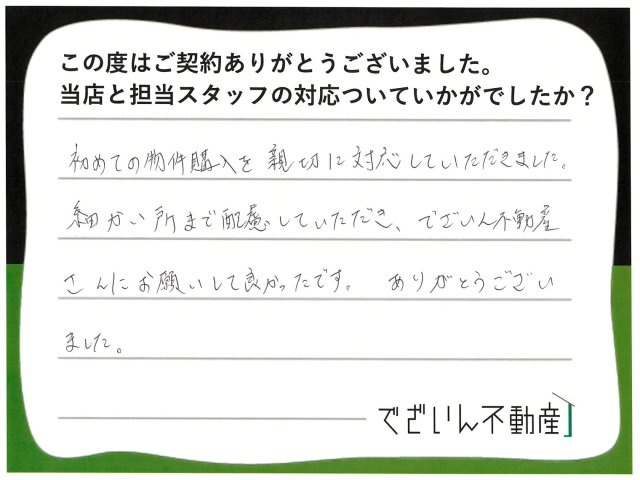 この度はご契約ありがとうございました。
当店と担当スタッフの対応ついていかがでしたか？
初めての物件購入を親切に対応していただきました。
細かい所まで配慮していただき、でざいん不動産
さんにお願いして良かったです。 ありがとうござい
ました。
でざいん不動産